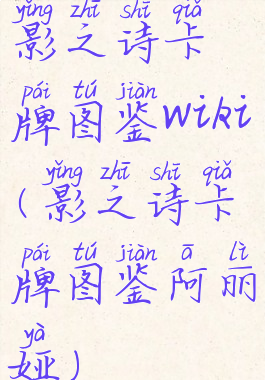 yǐng zhī shī qiǎ
影之诗卡
pái tú jiàn
牌图鉴wiki
yǐng zhī shī qiǎ
(影之诗卡
pái tú jiàn ā lì
牌图鉴阿丽
yà
娅)